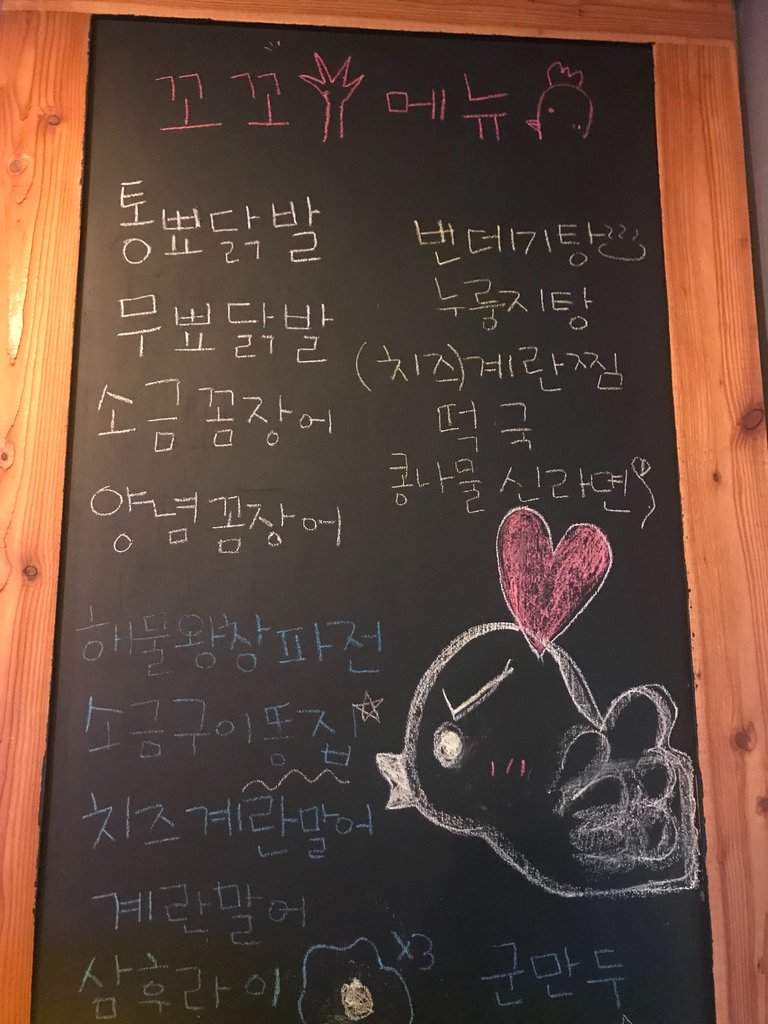 꼬꼬 메뉴
통뼈닭발
무뼈닭발
소금꼼장어
양념꼼장어
번데기탕
누룽지탕
(치즈)계란찜
떡국
콩나물신라면
해물왕창파전
소금구이똥집
치즈계란말이
계란말이
삼후라이 x3
군만두